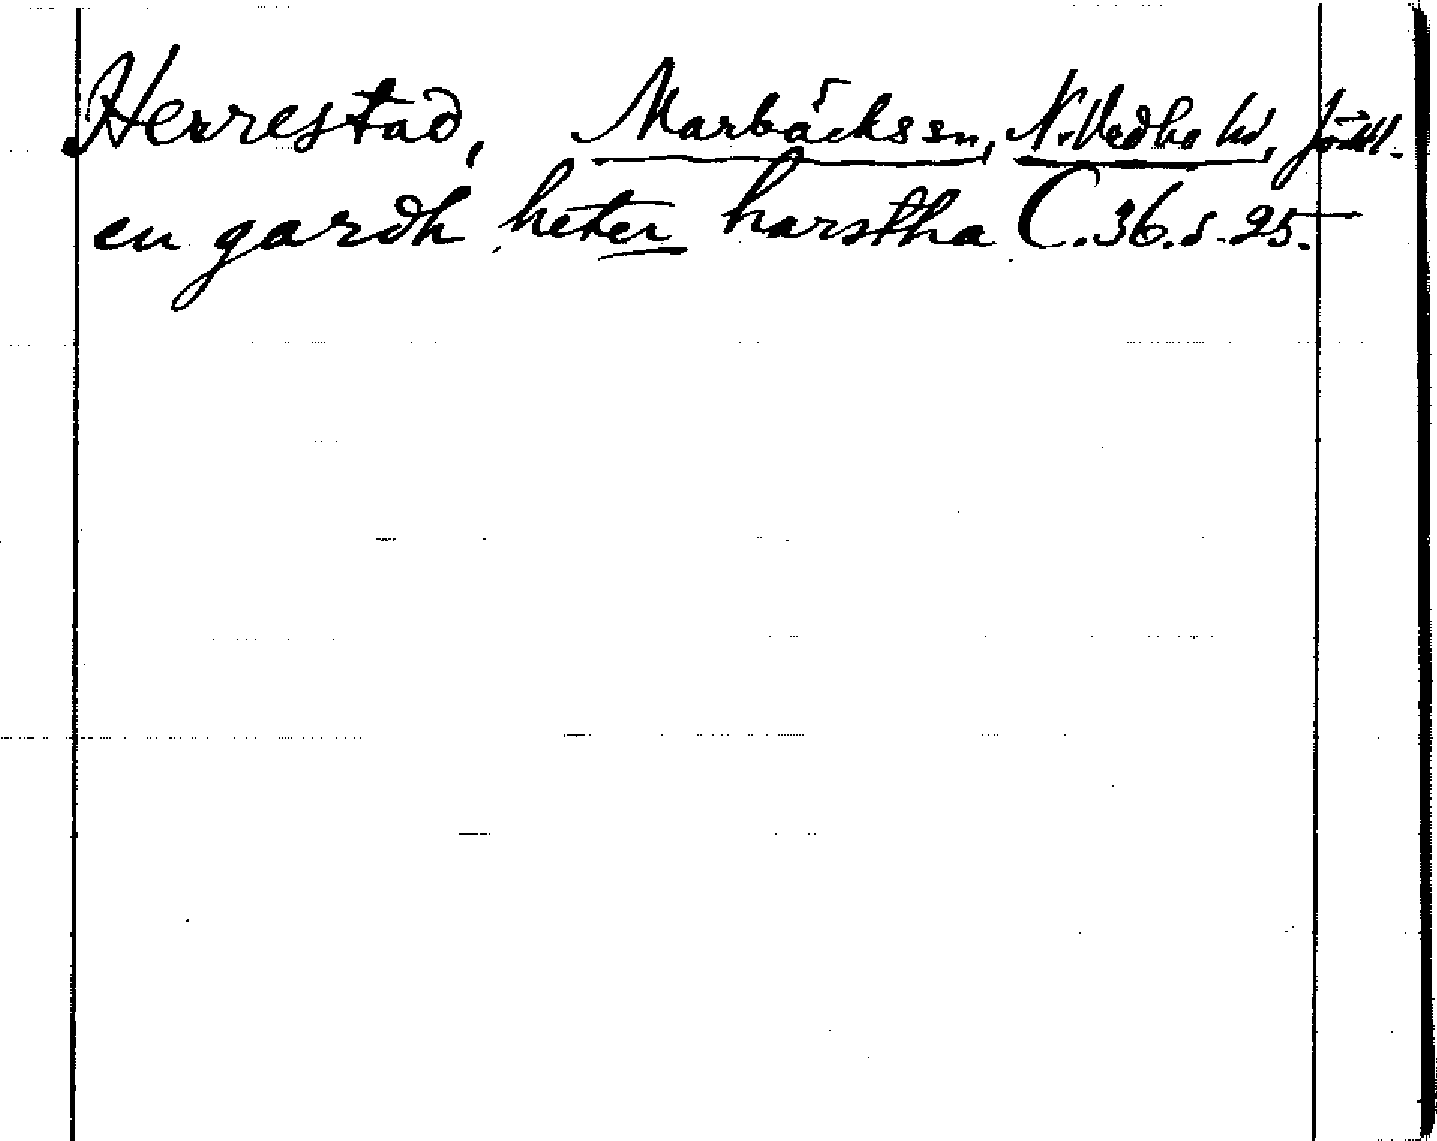 Herrestad, Marbäcks sn, N. Vedbo hd, Jönkl.
en gardh heter harstha C. 36. s. 25.